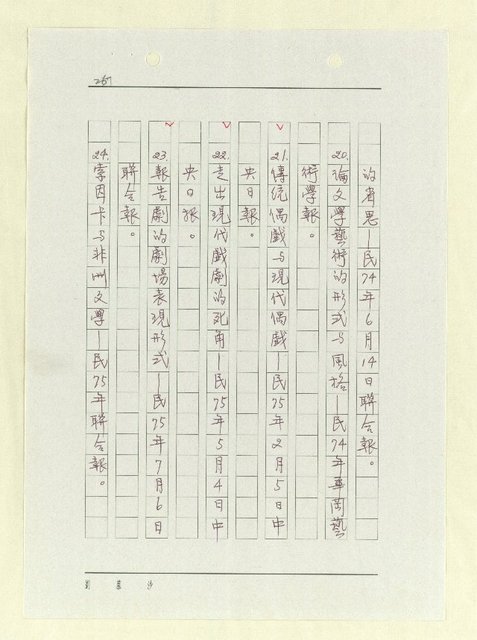 267
的省思—民74年6月14日聯合報。
20.論文學藝術的形式与風格—民74年華岡藝
術學報。
21.傳統偶戲与現代偶戲—民75年2月5日中
央日報。
22.走出現代戲劇的死角—民75年5月4日中
央日報。
23.報告劇的劇場表現形式—民75年7月6日
聯合報。
24.索因卡与非洲文學—民75年聯合報。
劉慕沙